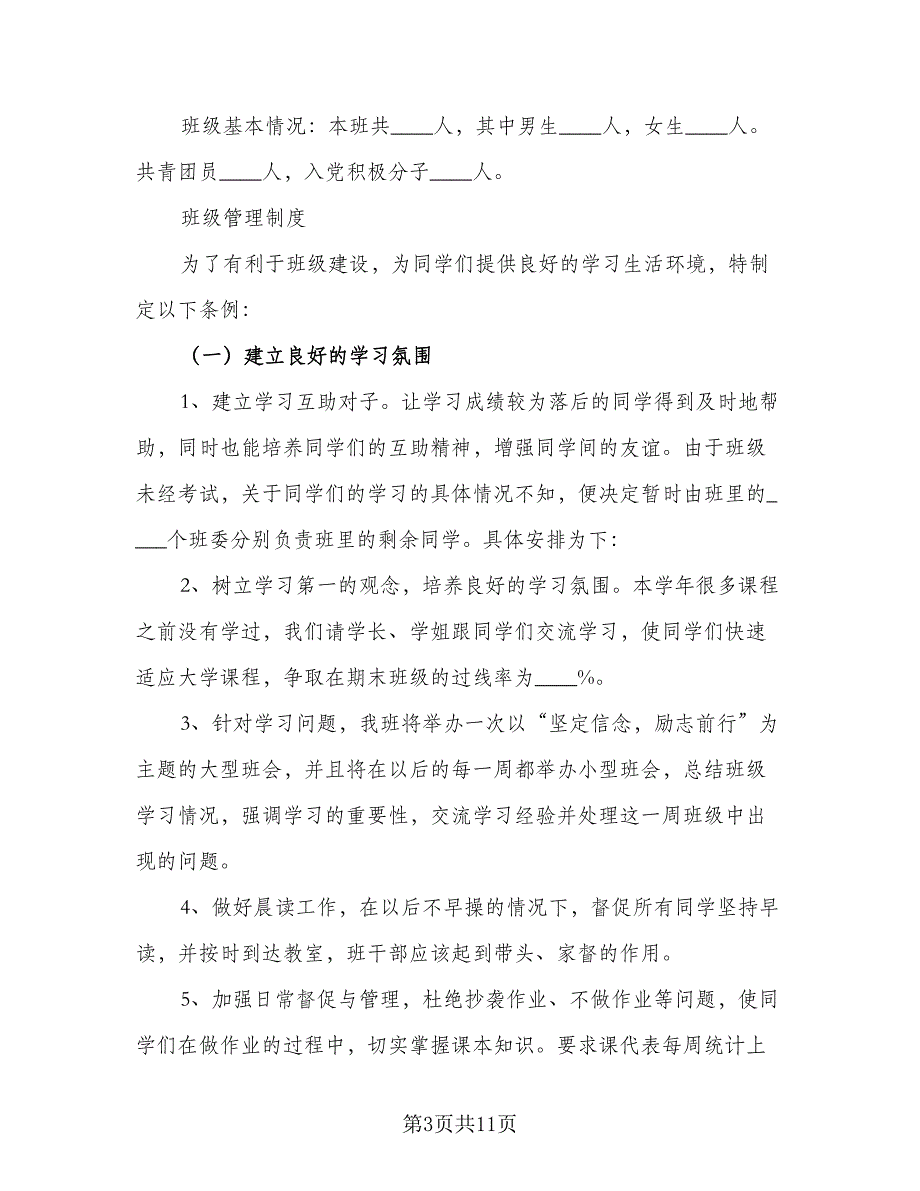 班级基本情况：本班共____人，其中男生____人，女生____人。
共青团员____人，入党积极分子____人。
班级管理制度
为了有利于班级建设，为同学们提供良好的学习生活环境，特制
定以下条例：
（一）建立良好的学习氛围
1、建立学习互助对子。让学习成绩较为落后的同学得到及时地帮
助，同时也能培养同学们的互助精神，增强同学间的友谊。由于班级
未经考试，关于同学们的学习的具体情况不知，便决定暂时由班里的_
___个班委分别负责班里的剩余同学。具体安排为下：
2、树立学习第一的观念，培养良好的学习氛围。本学年很多课程
之前没有学过，我们请学长、学姐跟同学们交流学习，使同学们快速
适应大学课程，争取在期末班级的过线率为____%。
3、针对学习问题，我班将举办一次以“坚定信念，励志前行”为
主题的大型班会，并且将在以后的每一周都举办小型班会，总结班级
学习情况，强调学习的重要性，交流学习经验并处理这一周班级中出
现的问题。
4、做好晨读工作，在以后不早操的情况下，督促所有同学坚持早
读，并按时到达教室，班干部应该起到带头、家督的作用。
5、加强日常督促与管理，杜绝抄袭作业、不做作业等问题，使同
学们在做作业的过程中，切实掌握课本知识。要求课代表每周统计上
第3页共11页